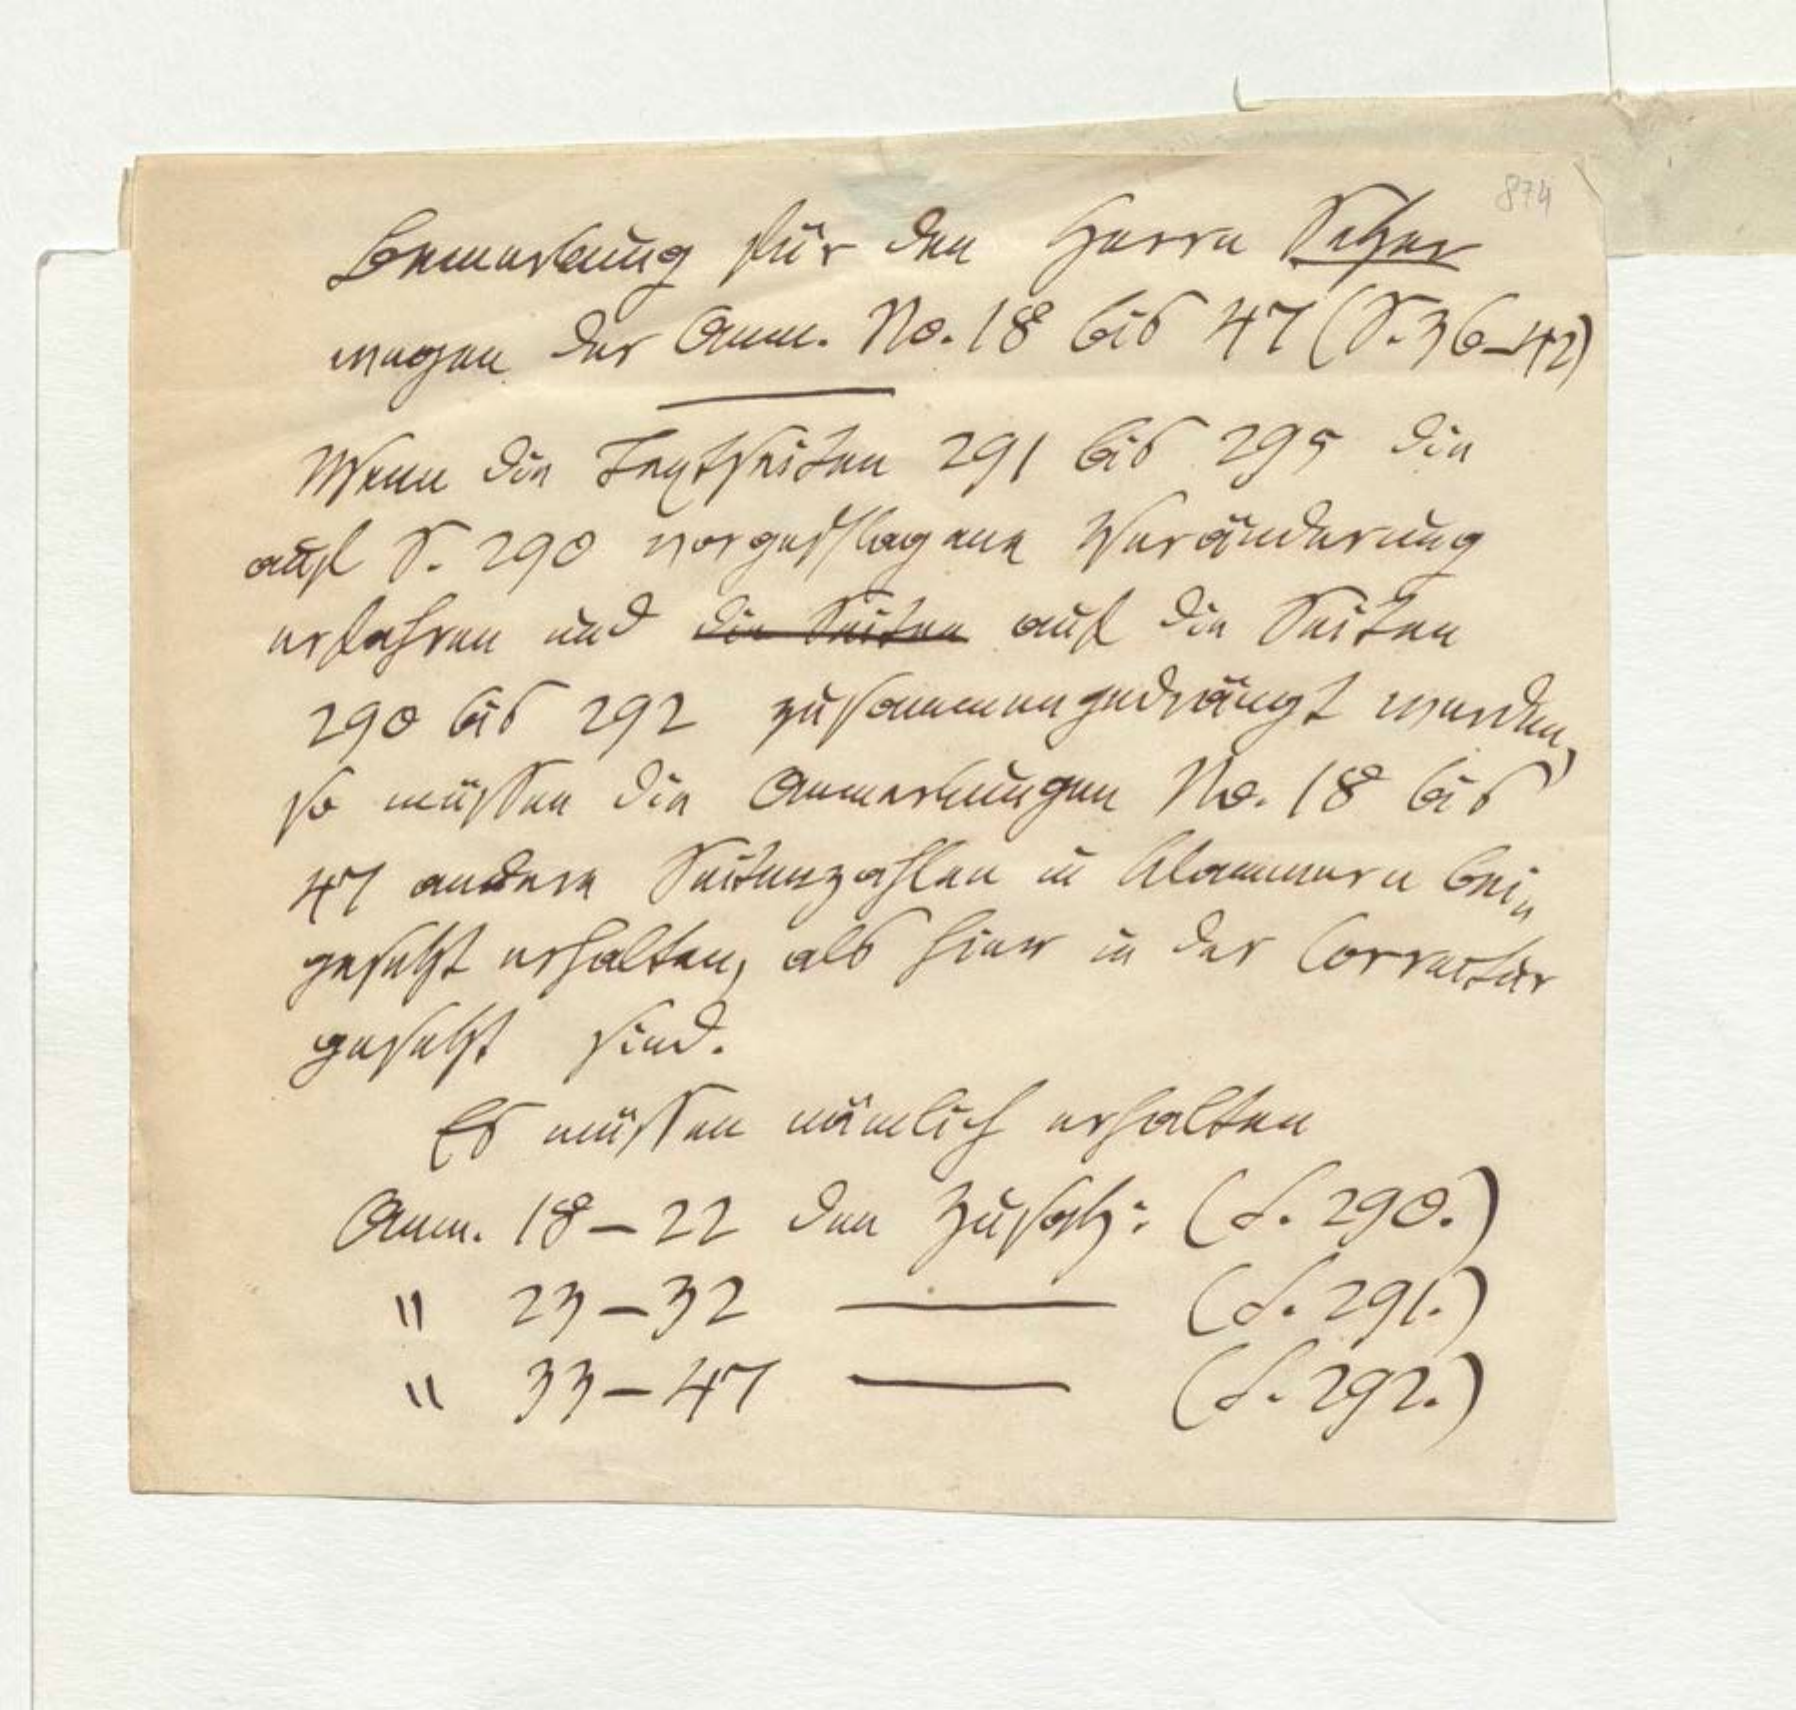 874
Bemerkung für den Herrn Setzer
wegen der Anm. No. 18 bis 47 (S. 36–42)
Wenn die Textseiten 291 bis 295 die
auf S. 290 vorgeschlagene Veränderung
erfahren und die Seiten auf die Seiten
290 bis 292 zusammengedrängt werden,
so müssen die Anmerkungen No. 18 bis
47 andere Seitenzahlen in Klammern bei„
gesetzt erhalten, als hier in der Correctur
gesetzt sind.
Es müssen nämlich erhalten
Anm. 18–22 den Zusatz: (S. 290.)
" 23–32 — (S. 291.)
" 33–47 — (S. 292.)